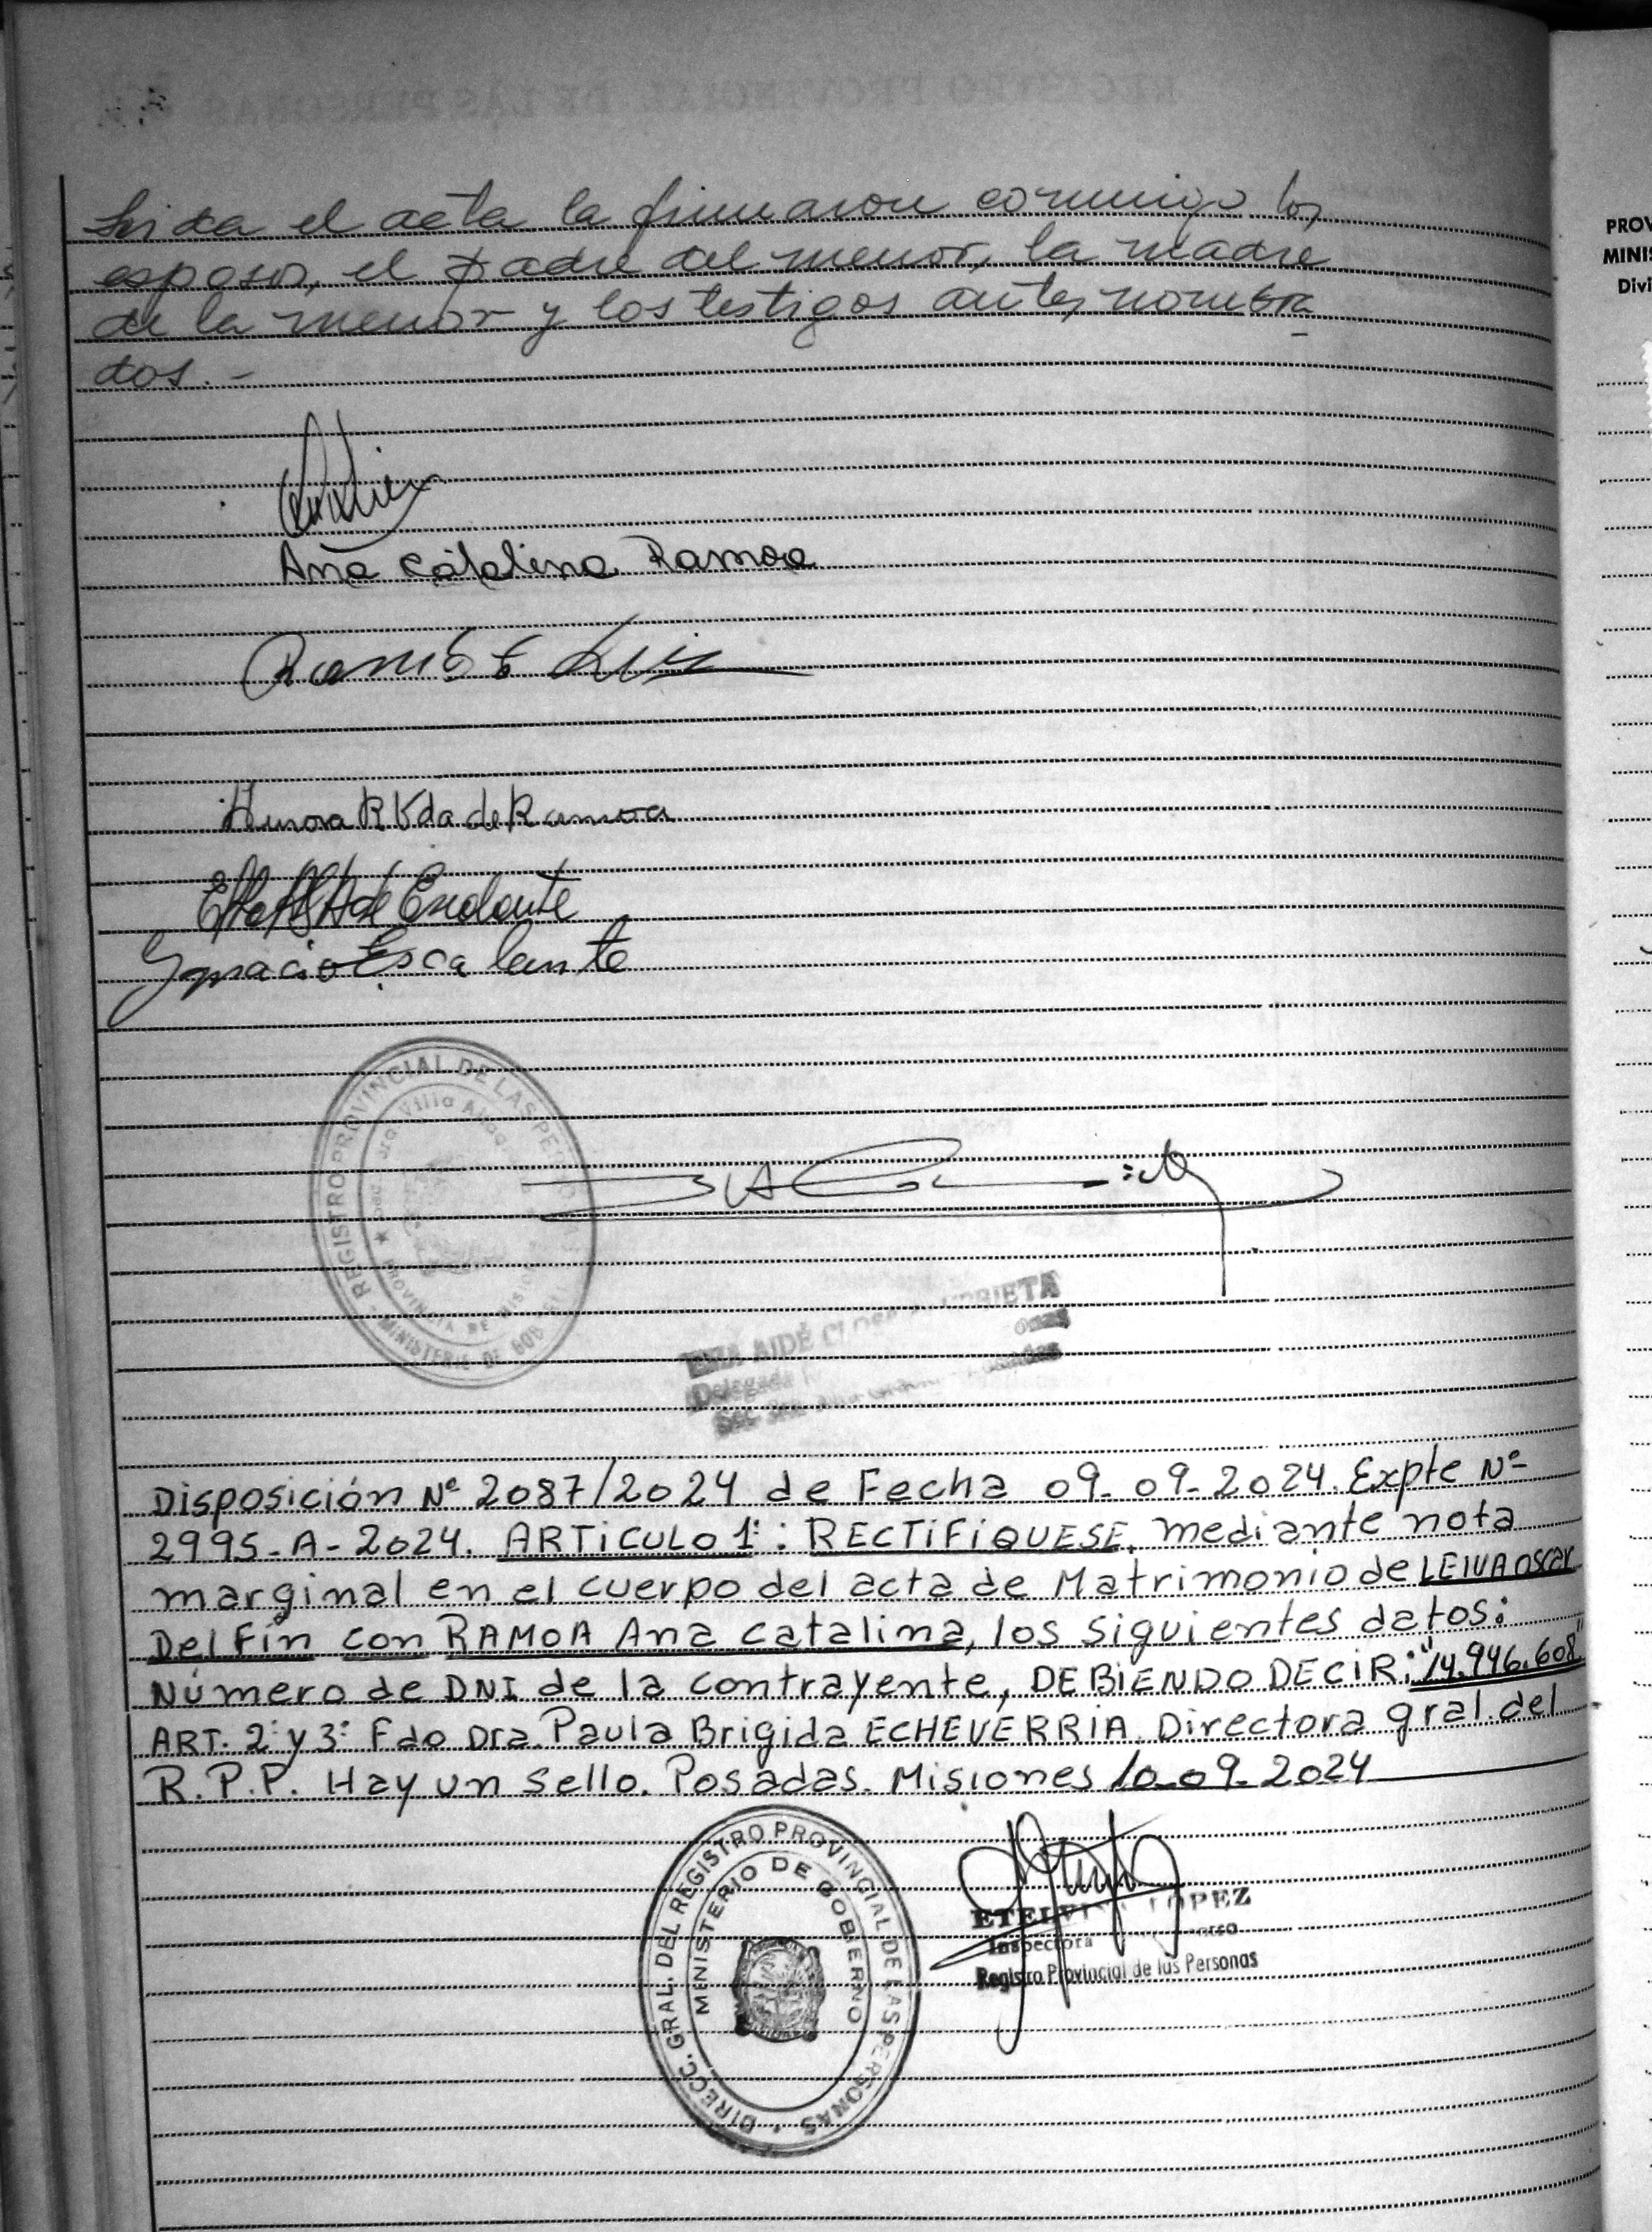 Leida el acta la firmaron conmigo los
esposos, el padre del menor, la madre
de la menor y los testigos antes nombra
dos.-
Ana Catalina Ramoa
Luis
Aurora R Vda de Ramoa
de Escalante
Ignacio Escalante
REGISTRO PROVINCIAL DE LAS PERSONAS
Villa
PROVINCIA DE MISIONES
MINISTERIO DE GOB
AIDÉ URRIETA
Delegada
Disposición Nº 2087/2024 de Fecha 09-09-2024. Expte Nº
2995-A-2024. ARTiCULO 1º: RECTiFiQUESE, mediante nota
marginal en el cuerpo del acta de Matrimonio de LEIVA Oscar
DelFín con RAMOA Ana Catalina, los siguientes datos:
Número de DNI de la contrayente, DEBiENDO DECiR: "14.946.608"
ART. 2º y 3º Fdo Dra. Paula Brigida ECHEVERRIA. Directora gral. del
R.P.P. Hay un sello. Posadas. Misiones 10-09-2024
DIRECC. GRAL. DEL REGISTRO PROVINCIAL DE LAS PERSONAS
MINISTERIO DE GOBIERNO
LOPEZ
Inspectora
Registro Provincial de las Personas
PROV
MINIS
Divi